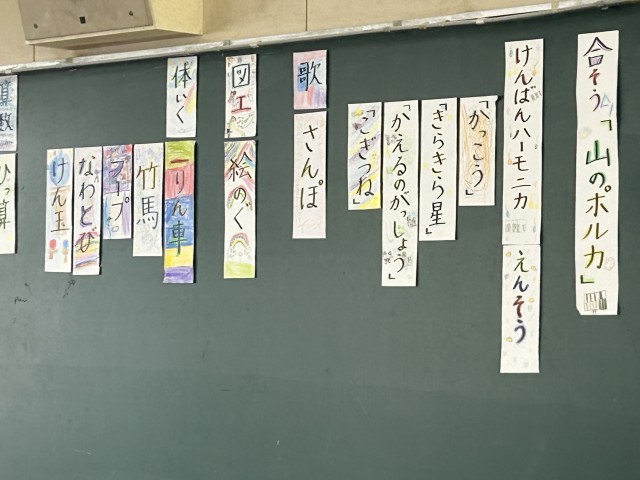 合そう「山のポルカ」
けんばんハーモニカ
えんそう
「かっこう」
「きらきら星」
「かえるのがっしょう」
「こぎつね」
歌
さんぽ
図工
絵のぐ
体いく
一りん車
竹馬
フープ
なわとび
けん玉
算数
ひっ算